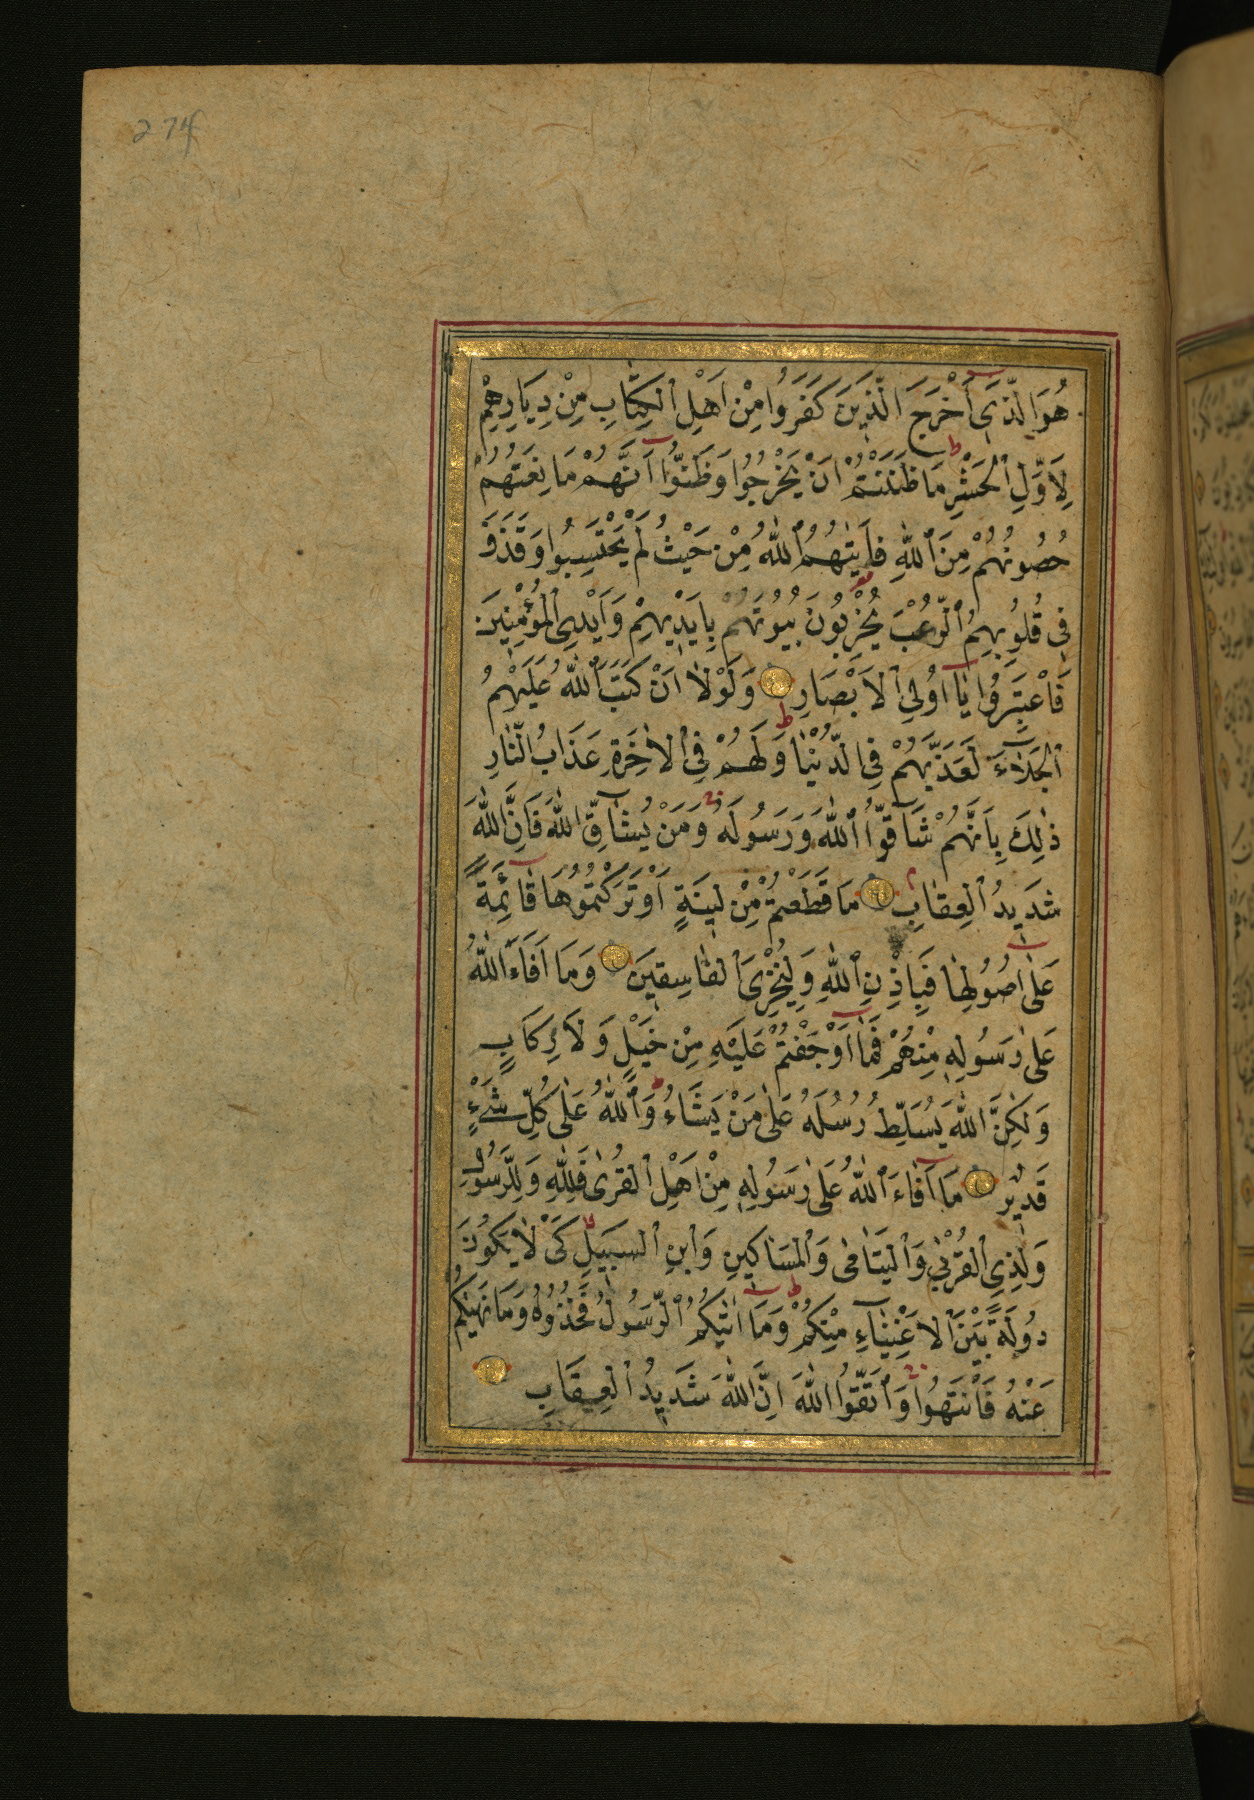 274
هُوَ الَّذِىٓ أَخْرَجَ الَّذِينَ كَفَرُوا مِنْ اَهْلِ الْكِتَابِ مِنْ دِيَارِهِمْ
لِاَوَّلِ الْحَشْرِ ط مَا ظَنَنْتُمْ اَنْ يَخْرُجُوا وَظَنُّوٓا اَنَّهُمْ مَانِعَتُهُمْ
حُصُونُهُمْ مِنَ اللّٰهِ فَاَتٰيهُمُ اللّٰهُ مِنْ حَيْثُ لَمْ يَحْتَسِبُوا وَقَذَفَ
فِى قُلُوبِهِمُ الرُّعْبَ يُخْرِبُونَ بُيُوتَهُمْ بِاَيْدِيهِمْ وَاَيْدِى الْمُؤْمِنِينَ
فَاعْتَبِرُوا يَآ اُولِى الْاَبْصَارِ وَلَوْلَآ اَنْ كَتَبَ اللّٰهُ عَلَيْهِمُ
الْجَلَآءَ لَعَذَّبَهُمْ فِى الدُّنْيَا ط وَلَهُمْ فِى الْاٰخِرَةِ عَذَابُ النَّارِ
ذٰلِكَ بِاَنَّهُمْ شَآقُّوا اللّٰهَ وَرَسُولَهُ وَمَنْ يُشَآقِّ اللّٰهَ فَاِنَّ اللّٰهَ
شَدِيدُ الْعِقَابِ مَا قَطَعْتُمْ مِنْ لِينَةٍ اَوْ تَرَكْتُمُوهَا قَآئِمَةً
عَلٰىٓ اُصُولِهَا فَبِاِذْنِ اللّٰهِ وَلِيُخْزِىَ الْفَاسِقِينَ وَمَآ اَفَآءَ اللّٰهُ
عَلٰى رَسُولِهِ مِنْهُمْ فَمَآ اَوْجَفْتُمْ عَلَيْهِ مِنْ خَيْلٍ وَلَا رِكَابٍ
وَلٰكِنَّ اللّٰهَ يُسَلِّطُ رُسُلَهُ عَلٰى مَنْ يَشَآءُ ط وَاللّٰهُ عَلٰى كُلِّ شَىْءٍ
قَدِيرٌ مَآ اَفَآءَ اللّٰهُ عَلٰى رَسُولِهِ مِنْ اَهْلِ الْقُرٰى فَلِلّٰهِ وَلِلرَّسُولِ
وَلِذِى الْقُرْبٰى وَالْيَتَامٰى وَالْمَسَاكِينِ وَابْنِ السَّبِيلِ لا كَىْ لَا يَكُونَ
دُولَةً بَيْنَ الْاَغْنِيَآءِ مِنْكُمْ ط وَمَآ اٰتٰيكُمُ الرَّسُولُ فَخُذُوهُ وَمَا نَهٰيكُمْ
عَنْهُ فَانْتَهُوا وَاتَّقُوا اللّٰهَ اِنَّ اللّٰهَ شَدِيدُ الْعِقَابِ